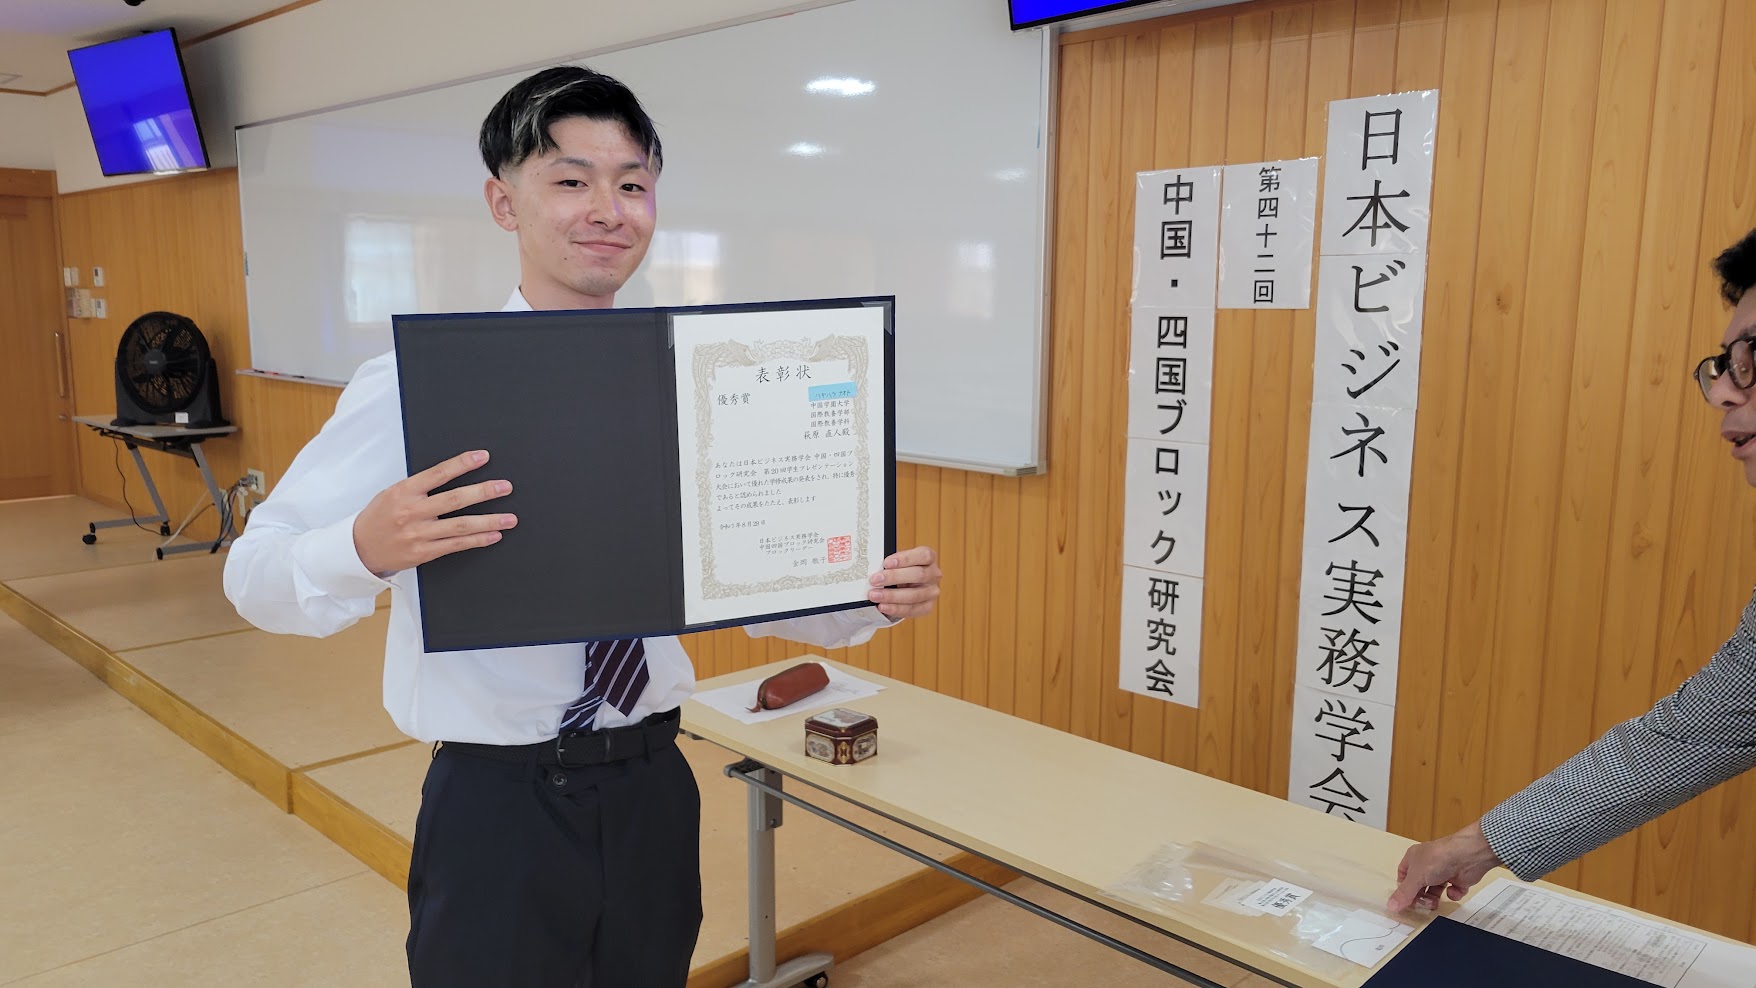 日本ビジネス実務学会
第四十二回
中国・四国ブロック研究会
表彰状
優秀賞
中国学園大学
国際教養学部
国際教養学科
萩原 直人殿
あなたは日本ビジネス実務学会 中国・四国ブ
ロック研究会 第20回学生プレゼンテーション
大会において優れた学修成果の発表をされ、特に優秀
であると認められました
よってその成果をたたえ、表彰します
令和7年8月29日
日本ビジネス実務学会
中国四国ブロック研究会
ブロックリーダー
金岡 敬子
優秀賞